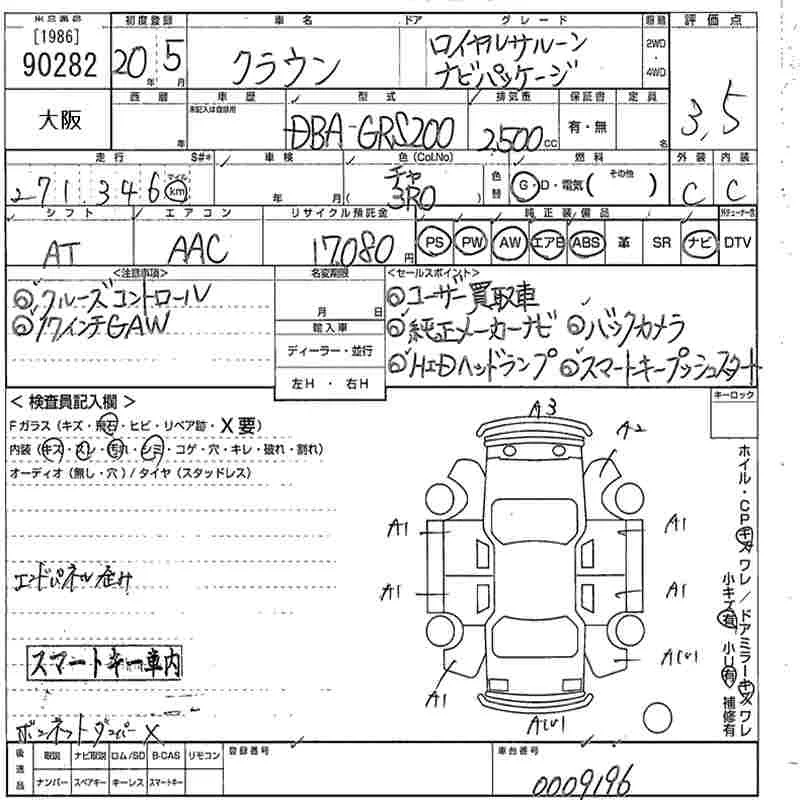 [1986]
90282
大阪
初度登録
20年 5月
車名
クラウン
ドア
グレード
ロイヤルサルーン
ナビパッケージ
2WD
・
4WD
評価点
3.5
西暦
年
車歴
未記入は自家用
型式
DBA-GRS200
排気量
2,500cc
保証書
有・無
定員
名
走行
S#*
271,346
マイル
km
車検
年 月
色(Col.No)
チャ
3R0
色替
燃料
G・D・電気( その他 )
外装
C
内装
C
シフト
AT
エアコン
AAC
リサイクル預託金
17,080円
純正装備品
PS PW AW エアB ABS 革 SR ナビ DTV
<注意事項>
◎クルーズコントロール
◎17インチGAW
名変期限
月 日
輸入車
ディーラー・並行
左H ・ 右H
<セールスポイント>
◎ユーザー買取車
◎純正メーカーナビ ◎バックカメラ
◎HIDヘッドランプ ◎スマートキープッシュスタート
キーロック
<検査員記入欄>
Fガラス(キズ・飛石・ヒビ・リペア跡・X要)
内装(キズ・スレ・汚れ・シミ・コゲ・穴・キレ・破れ・割れ)
オーディオ(無し・穴)/タイヤ(スタッドレス)
エンドパネル歪み
スマートキー車内
ボンネットダンパーX
A3
A2
A1
A1
A1
A1
A1
AU1
AU1
ホイル・CPキズワレ/ドアミラーキズワレ
小キズ有 小U有 補修有
後送品
取説 ナビ取説 ロム/SD B-CAS リモコン
ナンバー スペアキー キーレス スマートキー
登録番号
車台番号
0009196